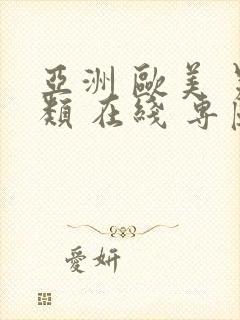 亞洲 歐美
類 在綫 專
愛妍